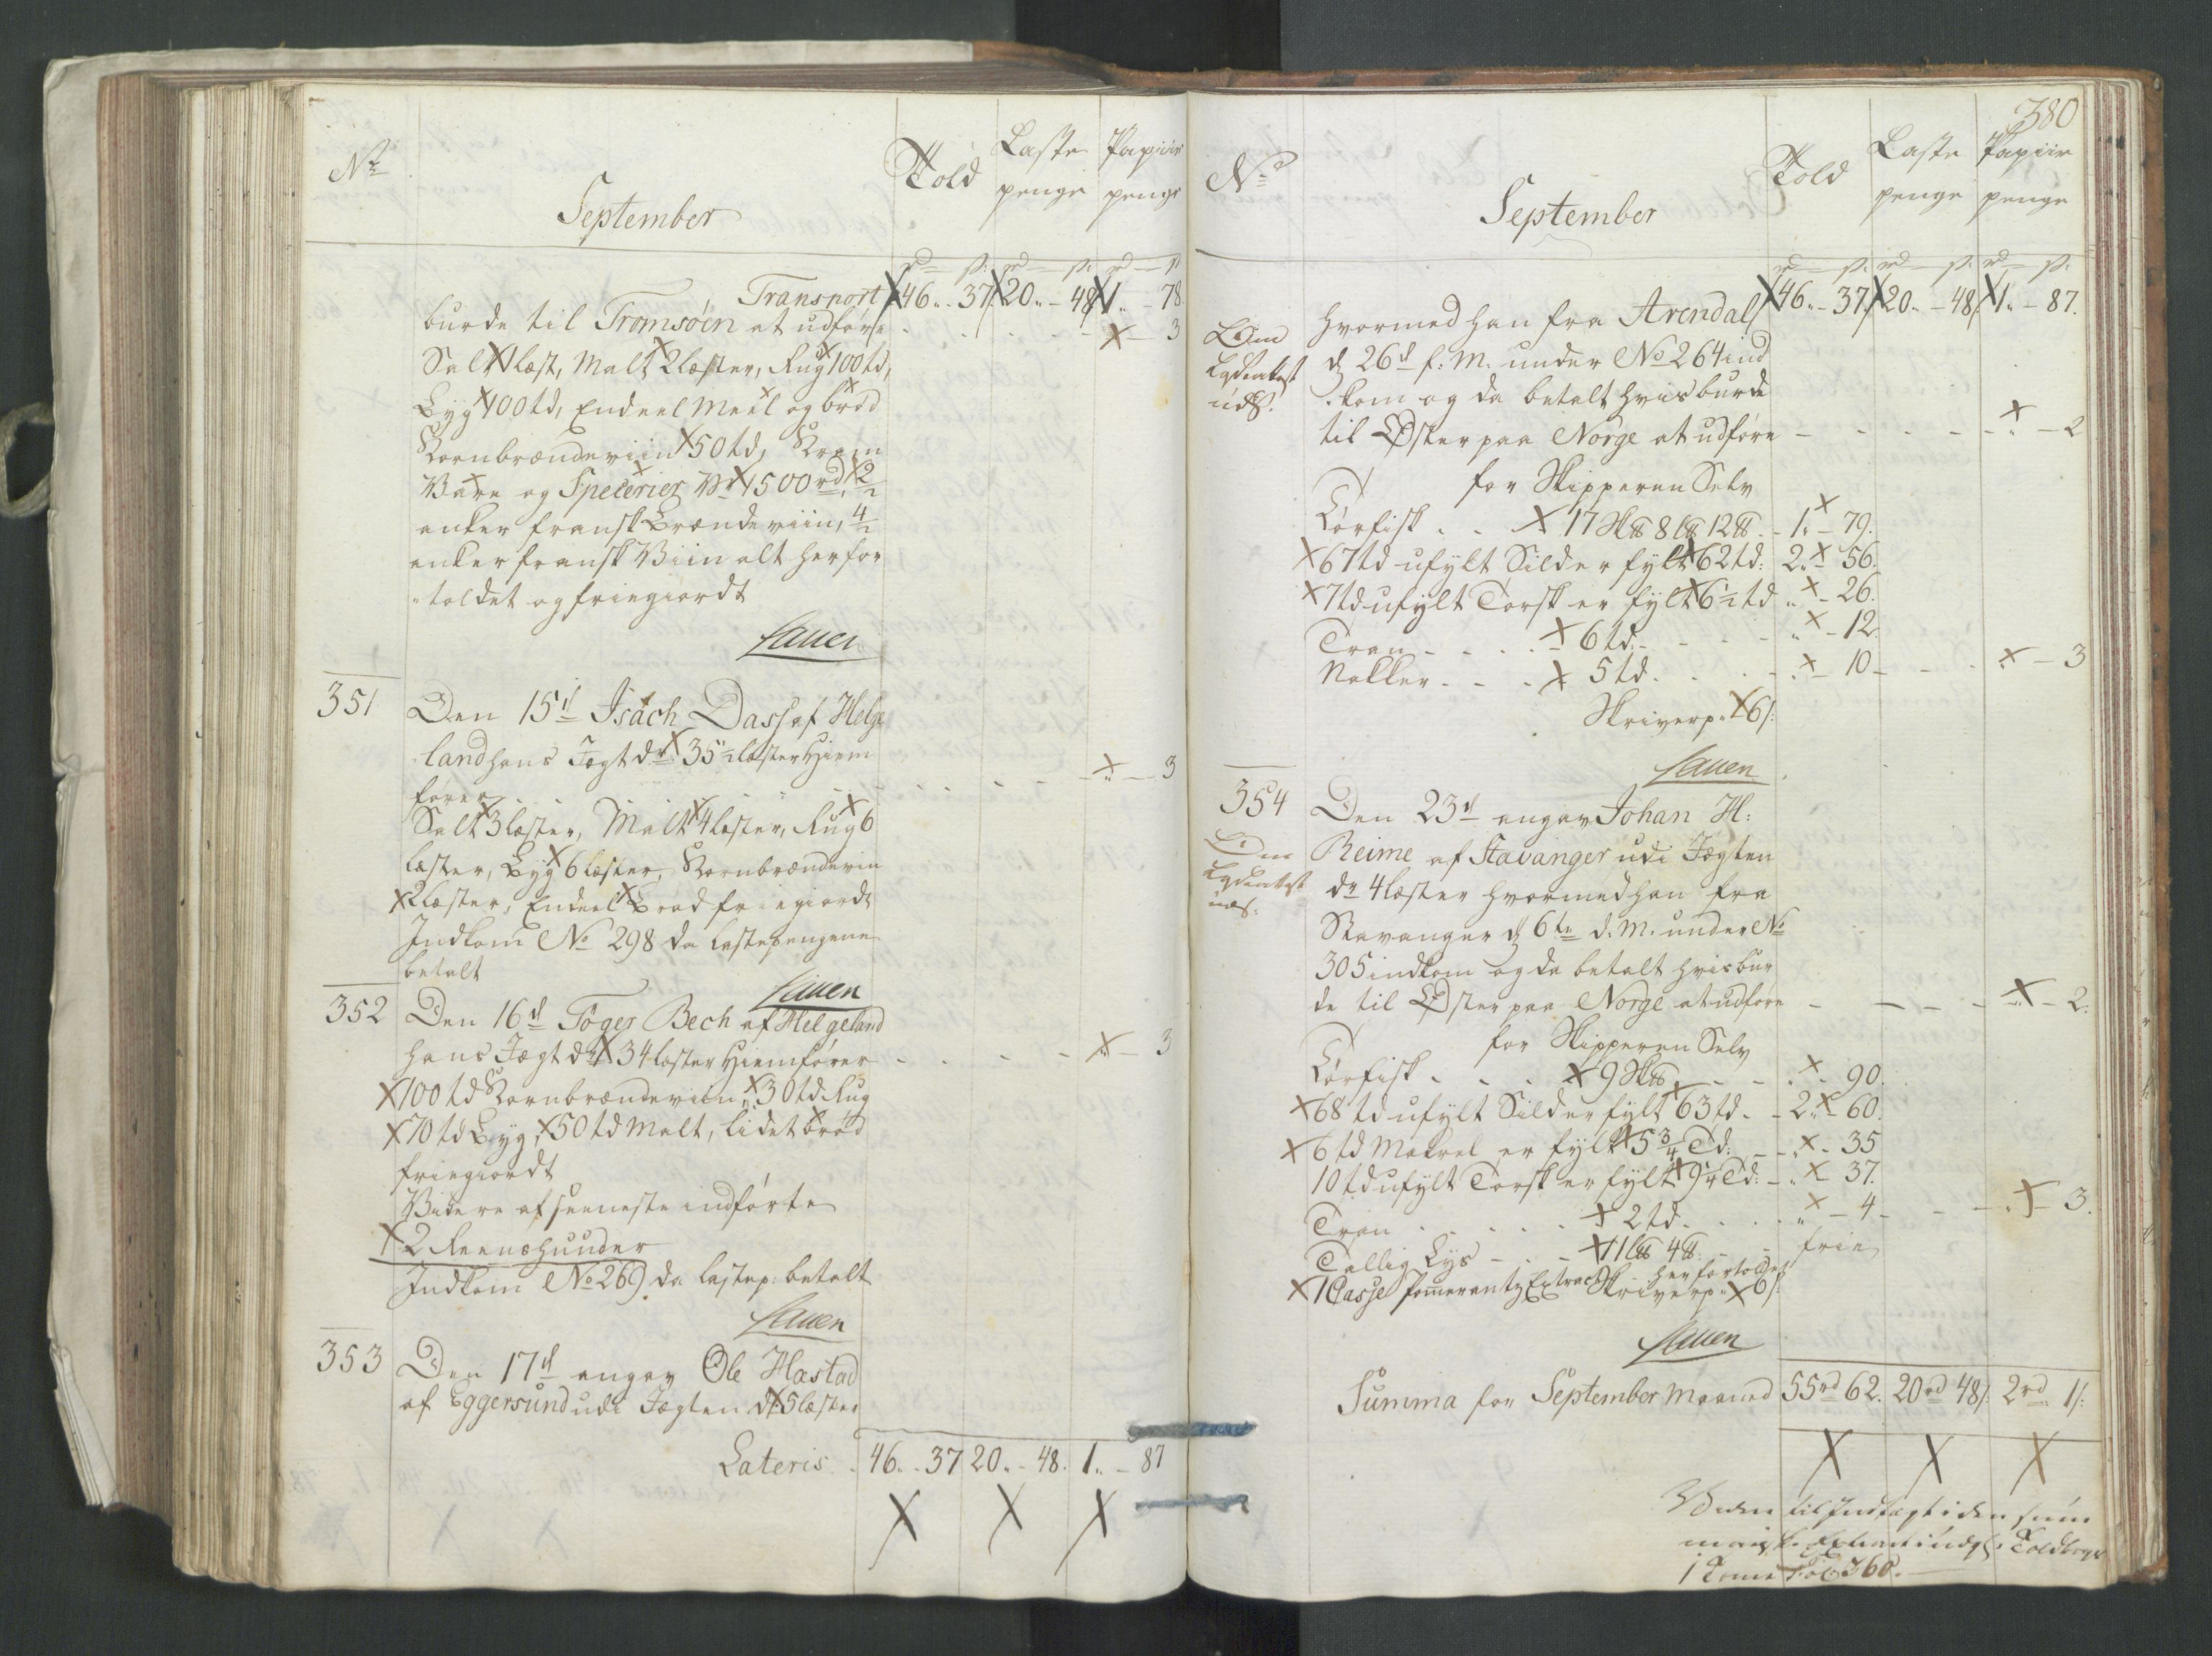 No
September
Told
Laste
penge
Papiir
penge
rd s: rd s: rd s
Transport 46.. - 37. 20.. - 48 1.. - 78.
burde til Tromsöen at udføre - 3
Salt 1 læst, Malt 2 læster, Rug 100 td,
Byg 100 td, Endeel Meel og brød
Kornbrændeviin 50 td, Kram
Vare og Specerier 1500 rd, 2/2
anker fransk Brændeviin, 4/2
anker fransk Viin alt herfor
toldet og friegiordt
Lauen
351
Den 15d Isach Dass af Helge
land hans Jægt dr. 35 1/2 læster Hiem
fører - - - ..-3
Salt 3 læster, Malt 4 læster, Rug 6
læster, Byg 6 læster, Kornbrændeviin
2 læster, Endeel Brød friegiordt
Indkom No 298 da lastepengene
betalt
Lauen
352
Den 16d Töger Bech af Helgeland
hans Jægt dr 34 læster Hiemfører - - - ..-3
100 td Kornbrændeviin, 30 td Rug
70 td Byg, 50 td Malt, lidet brød
friegiordt
Videre af seeneste indførte
2 Reenshuuder
Indkom No 269. da lastep: betalt
Lauen
353
Den 17d angav Ole Hastad
af Eggersund udi Jægten dr. 5 læster
Lateris. 46.. - 37 20.. - 48. 1.. - 87
380
No
September
Told
Laste
penge
Papiir
penge
rd s: rd s: rd s:
hvormed han fra Arendal 46.. - 37. 20.. - 48. 1.. - 87.
d 26d f: M. under No 264 ind
kom og da betalt hvis burde
til Øster paa Norge at udføre - - - ..-2
for Skipperen Selv
Tørfisk - - 17 8 12 - 1.. - 79.
67 td ufylt Sild er fylt 62 td: 2.. - 56.
7 td ufylt Torsk er fylt 6 1/2 td .. - 26.
Tran - - - 6 td. - .. - 12.
Nakker - - - 5 td. - .. - 10 - - - ..-3
Skriverp. 6 s:
Lauen
354
Den 23d angav Johan H:
Reime af Stavanger udi Jægten
dr 4 læster hvormed han fra
Stavanger d 6te d. M. under No
305 indkom og da betalt hvis bur
de til Øster paa Norge at udføre - - - ..-2.
for Skipperen Selv
Tørfisk - - - 9 - - .. - 90.
68 td ufylt Sild er fylt 63 td. - 2.. - 60.
6 td Makrel er fylt 5 3/4 Td: - .. - 35
10 td ufylt Torsk er fylt 9 1/4 Td: - .. - 37.
Tran - - - 2 td. - - .. - 4 - - - ..-3.
Tallig Lys - - 1 4 - - frie
1 Casse Pomerantz Extract her fortoldet
Skriverp. 6 s:
Lauen
Summa for September Maaned 55 rd 62. 20 rd 48 s. 2 rd. 1 s:
til Indtægt i den sum
Extract i Toldbog
i Fol 360.